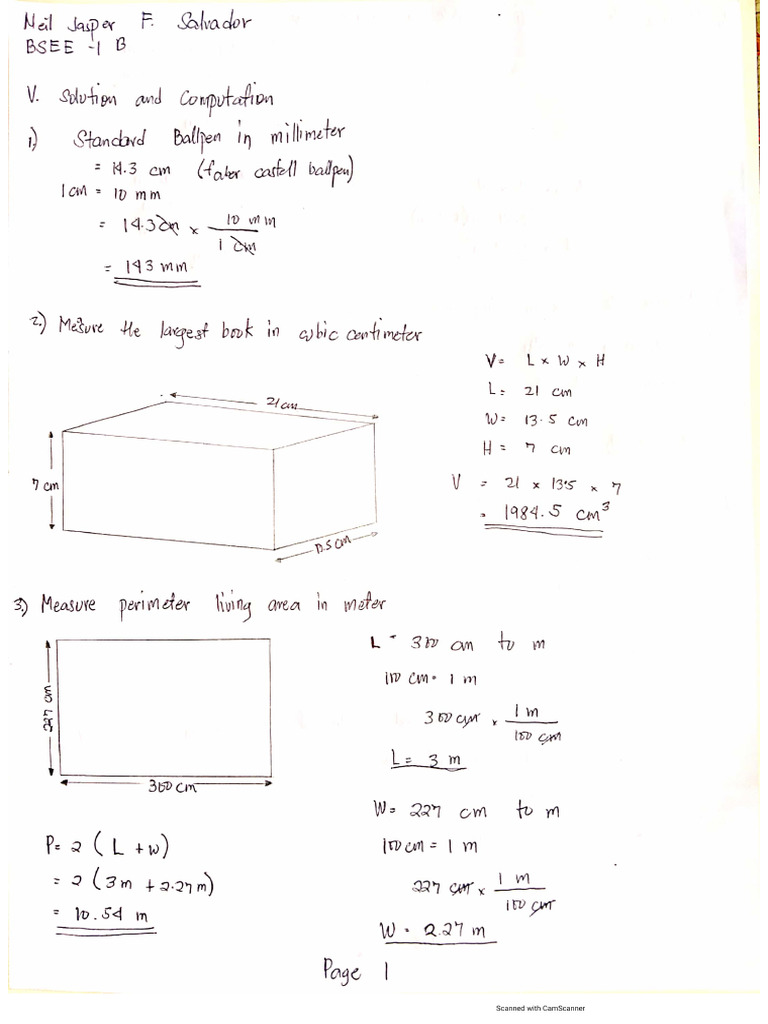 Neil Jasper F. Salvador
BSEE -1 B
V. Solution and Computation
1) Standard Ballpen in millimeter
= 14.3 cm (faber castell ballpen)
1 cm = 10 mm
= 14.3 cm × 10 mm / 1 cm
= 143 mm
2.) Mesure the largest book in cubic centimeter
21 cm
7 cm
13.5 cm
V= L × W × H
L= 21 cm
W= 13.5 cm
H = 7 cm
V = 21 × 13.5 × 7
= 1984.5 cm³
3.) Measure perimeter living area in meter
227 cm
300 cm
P= 2 ( L + W)
= 2 ( 3m + 2.27m)
= 10.54 m
L = 300 cm to m
100 cm = 1 m
300 cm × 1 m / 100 cm
L= 3 m
W= 227 cm to m
100 cm = 1 m
227 cm × 1 m / 100 cm
W = 2.27 m
Page 1
Scanned with CamScanner